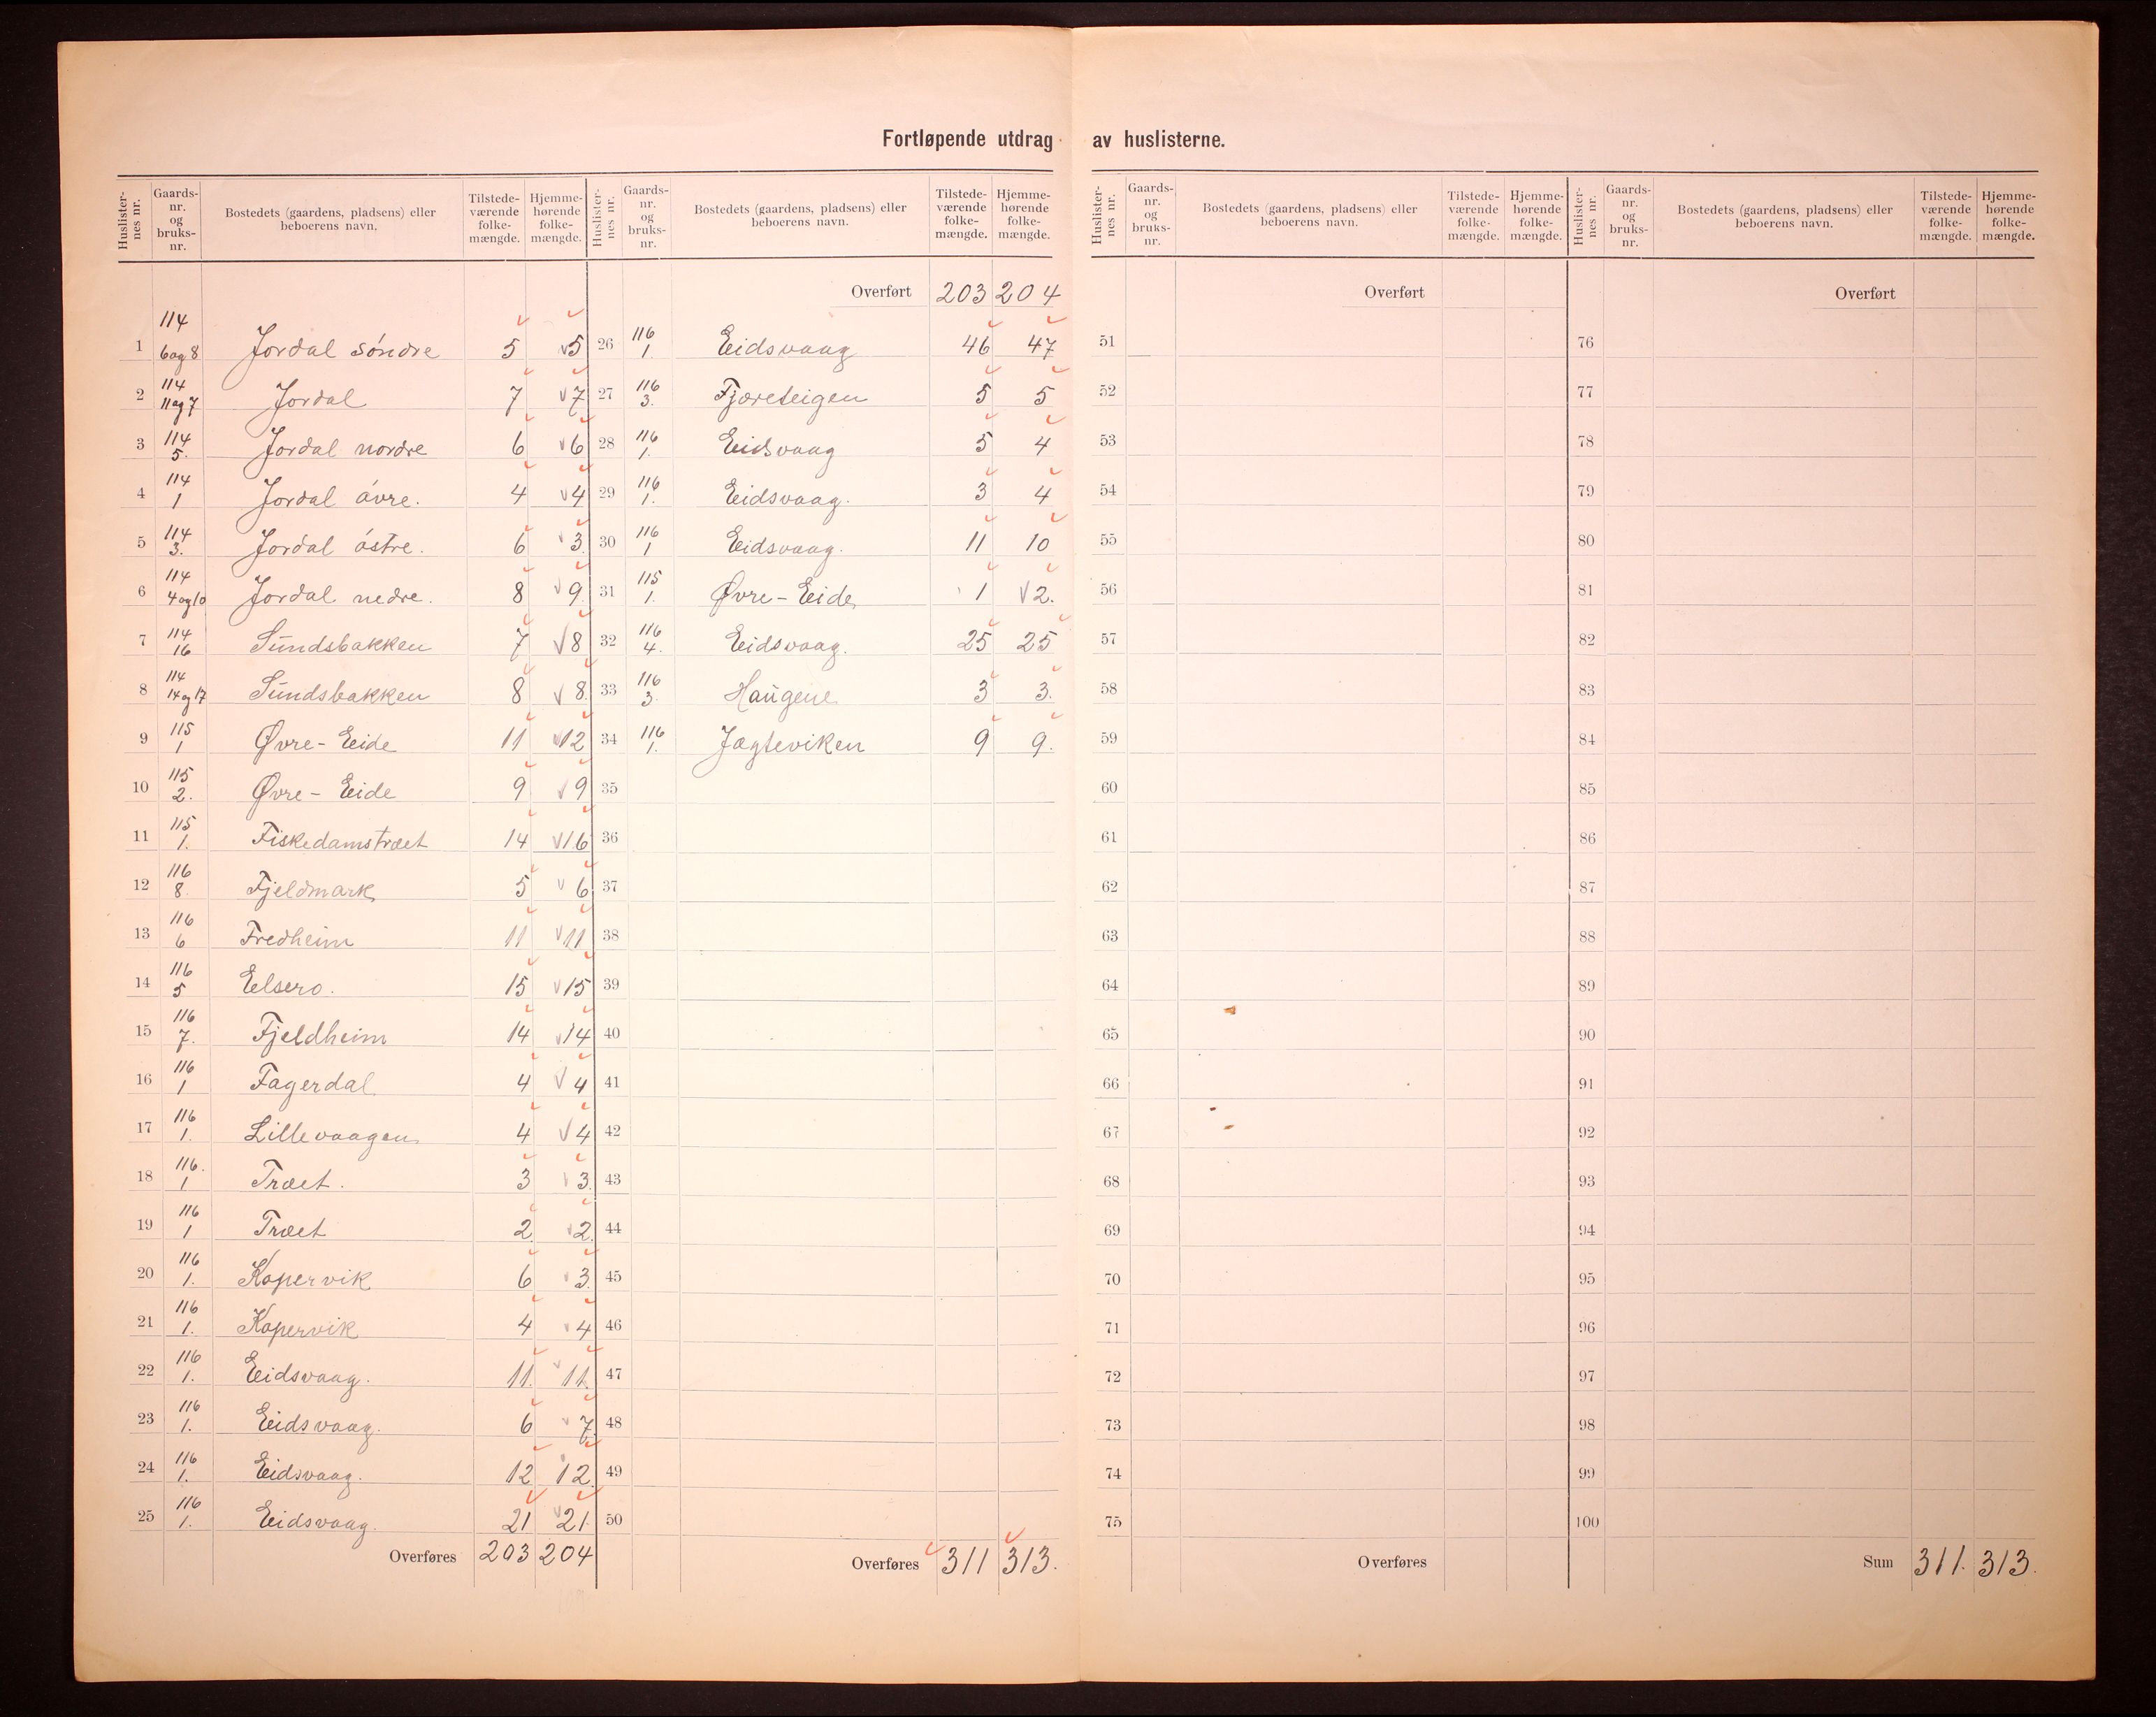 Fortløpende utdrag av huslisterne.
Huslister-nes nr. Gaards-nr. og bruks-nr. Bostedets (gaardens, pladsens) eller beboerens navn. Tilstede-værende folke-mængde. Hjemme-hørende folke-mængde.
1 114 6 og 8 Jordal søndre 5 5
2 114 11 og 7 Jordal 7 7
3 114 5. Jordal nordre 6 6
4 114 1 Jordal øvre. 4 4
5 114 3. Jordal østre. 6 3.
6 114 4 og 10 Jordal nedre. 8 9.
7 114 16 Sundsbakken 7 8
8 114 14 og 17 Sundsbakken 8 8.
9 115 1 Øvre - Eide 11 12
10 115 2. Øvre - Eide 9 9
11 115 1. Fiskedamstræet 14 16
12 116 8 Fjeldmark 5 6
13 116 6 Fredheim 11 11
14 116 5 Elsero. 15 15
15 116 7. Fjeldheim 14 14
16 116 1 Fagerdal 4 4
17 116 1. Lillevaagen 4 4
18 116. 1 Træet. 3 3.
19 116 1 Træet 2 2.
20 116 1. Kopervik 6 3.
21 116 1. Kopervik 4 4
22 116 1. Eidsvaag. 11. 11.
23 116 1. Eidsvaag. 6 7.
24 116 1. Eidsvaag. 12 12.
25 116 1. Eidsvaag. 21 21.
Overføres 203 204
Huslister-nes nr. Gaards-nr. og bruks-nr. Bostedets (gaardens, pladsens) eller beboerens navn. Tilstede-værende folke-mængde. Hjemme-hørende folke-mængde.
Overført 203 204
26 116 1. Eidsvaag 46 47
27 116 3. Fjæreteigen 5 5
28 116 1. Eidsvaag 5 4
29 116 1. Eidsvaag. 3 4
30 116 1 Eidsvaag. 11 10
31 115 1. Øvre - Eide 1 2.
32 116 4. Eidsvaag. 25 25
33 116 3. Haugene 3 3.
34 116 1. Jægteviken 9 9.
35
36
37
38
39
40
41
42
43
44
45
46
47
48
49
50
Overføres 311 313.
Huslister-nes nr. Gaards-nr. og bruks-nr. Bostedets (gaardens, pladsens) eller beboerens navn. Tilstede-værende folke-mængde. Hjemme-hørende folke-mængde.
Overført
51
52
53
54
55
56
57
58
59
60
61
62
63
64
65
66
67
68
69
70
71
72
73
74
75
Overføres
Huslister-nes nr. Gaards-nr. og bruks-nr. Bostedets (gaardens, pladsens) eller beboerens navn. Tilstede-værende folke-mængde. Hjemme-hørende folke-mængde.
Overført
76
77
78
79
80
81
82
83
84
85
86
87
88
89
90
91
92
93
94
95
96
97
98
99
100
Sum 311. 313.